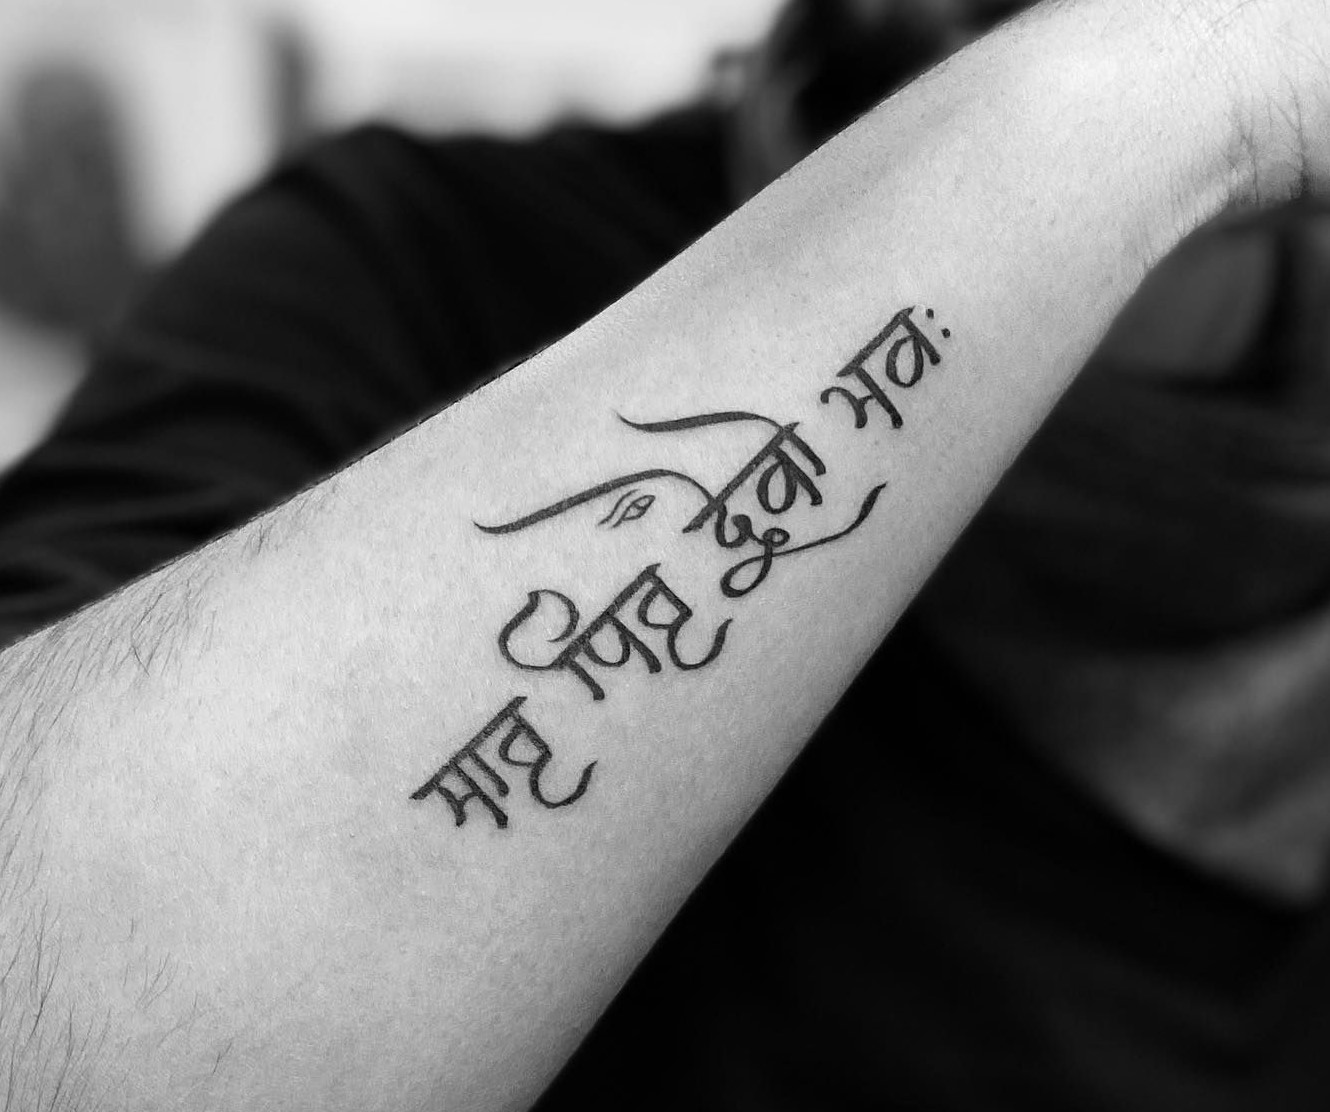 मातृ पितृ देवो भवः